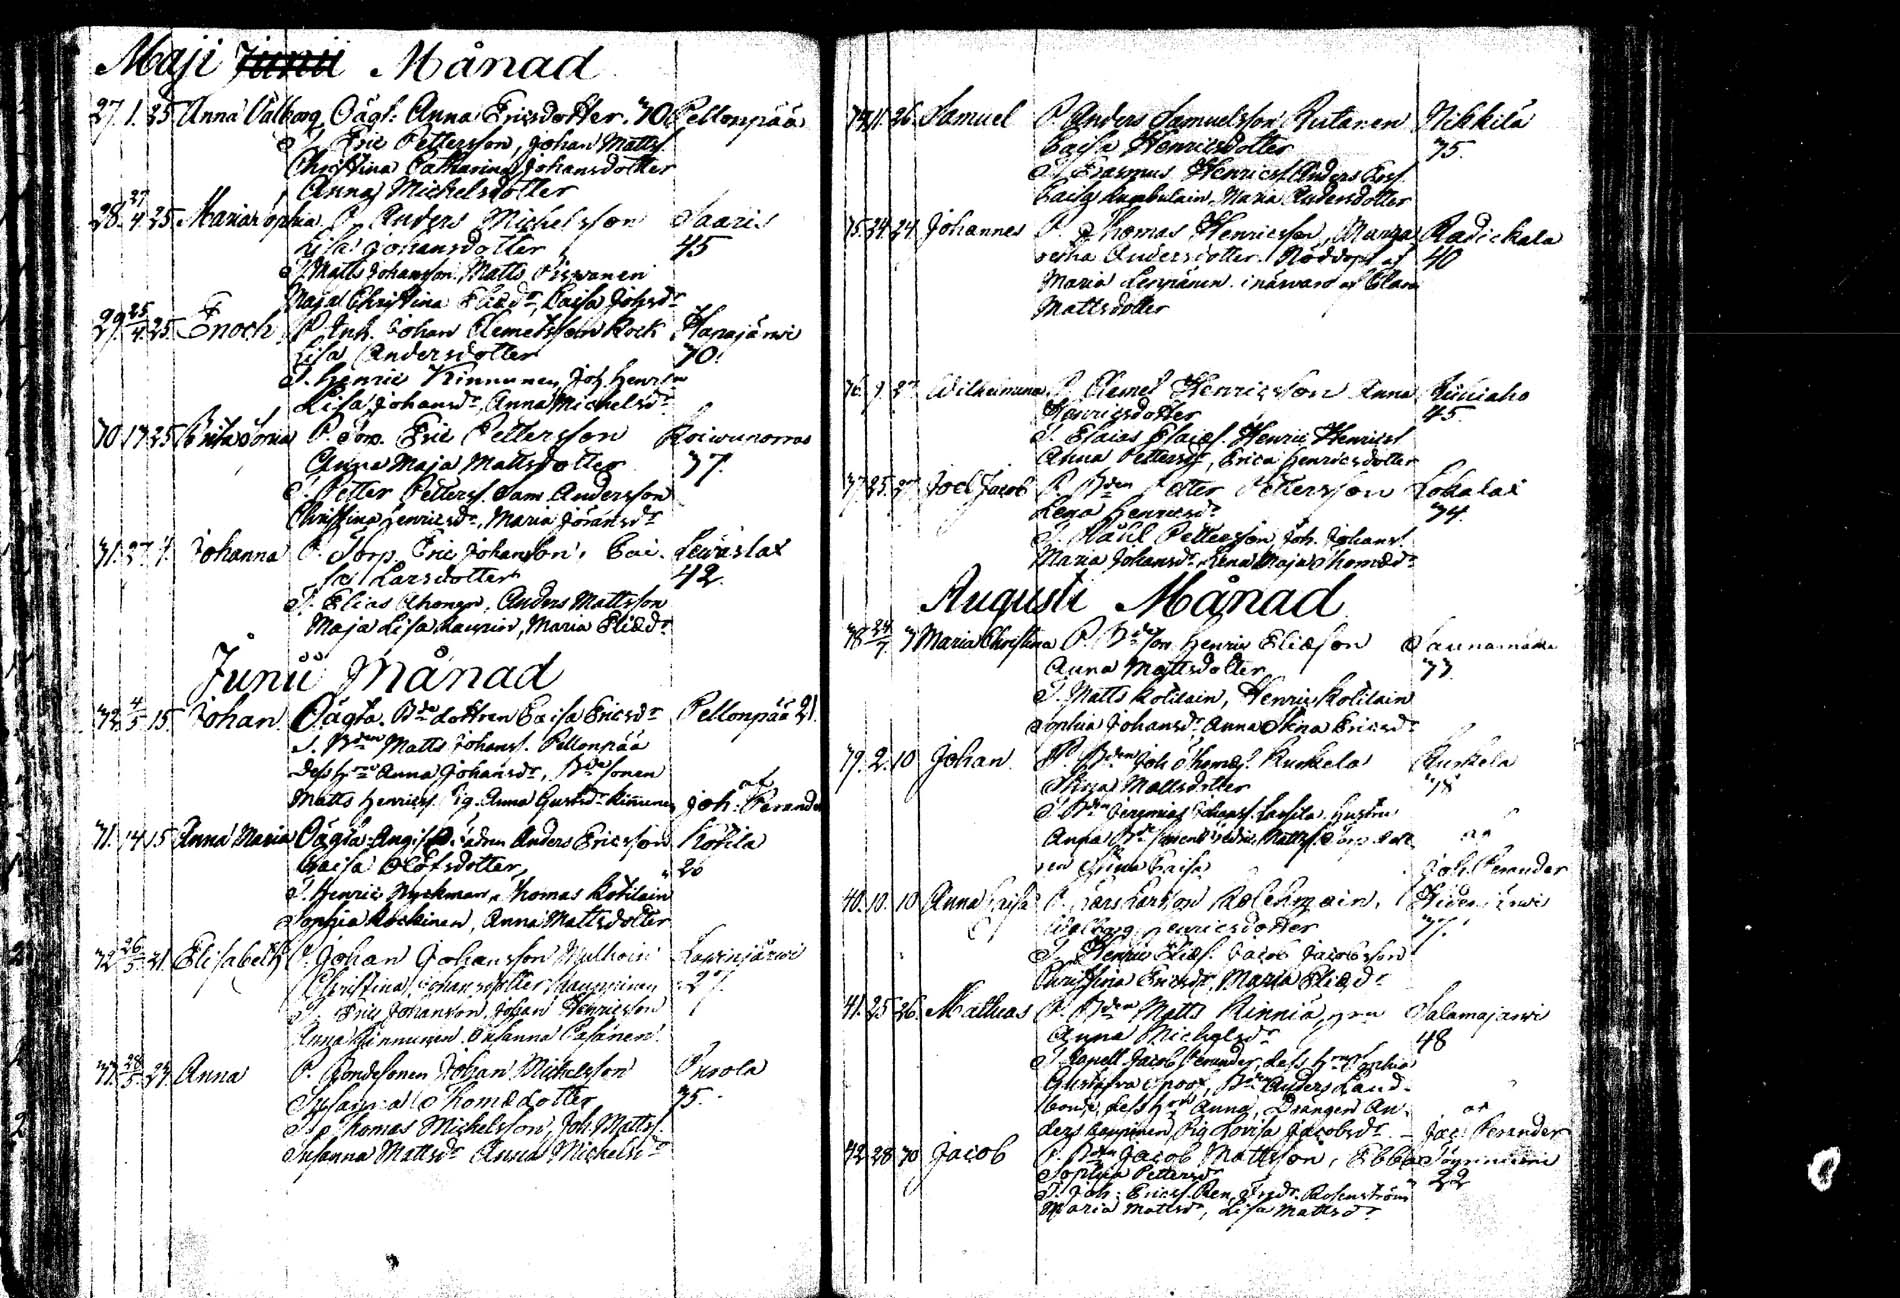 Maji Månad
27. 1. 25 Anna Valborg Oägt. Anna Ericsdotter. 30 Pellonpää
T. Eric Pettersson, Johan Matts.
Christina Catharina Johansdotter
Anna Michelsdotter
28. 27/4 25 Maria Sophia P. Anders Michelsson Saaris
Lisa Johansdotter 45
T. Matts Johansson, Matts
Maja Christina Eliædr, Caisa Johsdr
29. 25/4 25 Enoch P. Inh. Johan Clemetsson Kock Hanajärwi
Lisa Andersdotter 30.
T. Henric Kinnunen, Joh. Henrsn
Lisa Johansdr, Anna Michelsdr
30 17 25 Brita Sofia P. Torp. Eric Pettersson Koiwunorras
Anna Maja Mattsdotter 37.
T. Petter Petters. Sam. Andersson
Christina Henricsdr, Maria Göransdr
31. 27. 4. Johanna P. Torp. Eric Johansson, Cai- Lewäslax
sa Larsdotter 42.
T. Elias Ahonen, Anders Mattsson
Maja Lisa, Maria Eliædr
Junii Månad
32. 4/5 15. Johan. Oägta. Bde dottren Caisa Ericsdr Pellonpää 21.
T. Bden Matts Johans. Pellonpää
dess Hru Anna Johansdr, Bdesonen
Matts Henrics. Pig. Anna Gustsdr Kinnunen af Joh. Perander
31. 14 15 Anna Maria Oägta. Anders Ericsson Kotila
Caisa Olofsdotter, 26
T. Henric Nyckman, Thomas Kotilain
Sophia Kockinen, Anna Mattsdotter
32 26/5 21. Elisabeth P. Johan Johansson Mulhoin Lawinjärwi
Christina Johansdotter 27.
T. Eric Johansson, Johan Henricsson
Anna Kinnunen, Susanna Casänen.
33. 28/5 24 Anna P. Bondesonen Johan Michelsson
Susanna Thomædotter 35.
T. Thomas Michelsson, Joh. Matts.
Susanna Mattsdr Anna Michelsdr
34. 11. 26. Samuel P. Anders Samuelsson Rutanen Nikkilä
Caisa Henricsdotter 35.
T. Erasmus Henrics. Anders Ers.
Caisa, Maria Andersdotter
35. 24. 24 Johannes P. Thomas Henricsson, Marga- Radickala
retha Andersdotter. Nöddopt af 40
Maria Leppänen i närwaro af Clara
Mattsdotter
36. 9. 27 Wilhelmina P. Clemet Henricsson Anna
Henricsdotter 45.
T. Esaias Esaiæs. Henric Henrics.
Anna Pettersdr, Erica Henricsdotter
37 25. 27 Joel Jacob P. Bden Petter Pettersson Lokalax
Lena Henricsdr 34.
T. Påhl Pettersson, Joh. Johans.
Maria Johansdr, Lena Maja Thomædr
Augusti Månad
38 24/7 7 Maria Christina P. Bdeson Henric Eliæson Saunamäki
Anna Mattsdotter 33.
T. Matts Kotilain, Henric Kotilain
Sophia Johansdr, Anna Stina Ericsdr
39. 2. 10 Johan P. Bden Joh. Thomæs. Kurkela Kurkela
Stina Mattsdotter 38
T. Bden Jeremias Johans. Hustru
Anna, Bdesonen
Stina Caisa af Joh. Perander
40. 10. 10 Anna Caisa P. Lars Larsson Kolehmain,
Walborg Henricsdotter 37.
T. Henric Eliæs. Jacob Jacobsson
Christina Ericsdr, Maria Eliædr
41. 25 26. Mathias P. Bden Matts Kinnia, Hru Salamajärwi
Anna Michelsdr 48
T. Capell. Jacob Perander, dess Hru Sophia
Gustafva Spoof, Bden Anders Land-
bonde, dess Hru Anna, Drängen An-
ders Kauppinen, Pig. Lovisa Jacobsdr. af Jac. Perander
42 28 30 Jacob P. Bden Jacob Mattsson, Ebba
Sophia Pettersdr 22
T. Joh. Erics. Rosenström
Maria Mattsdr, Lisa Mattsdr